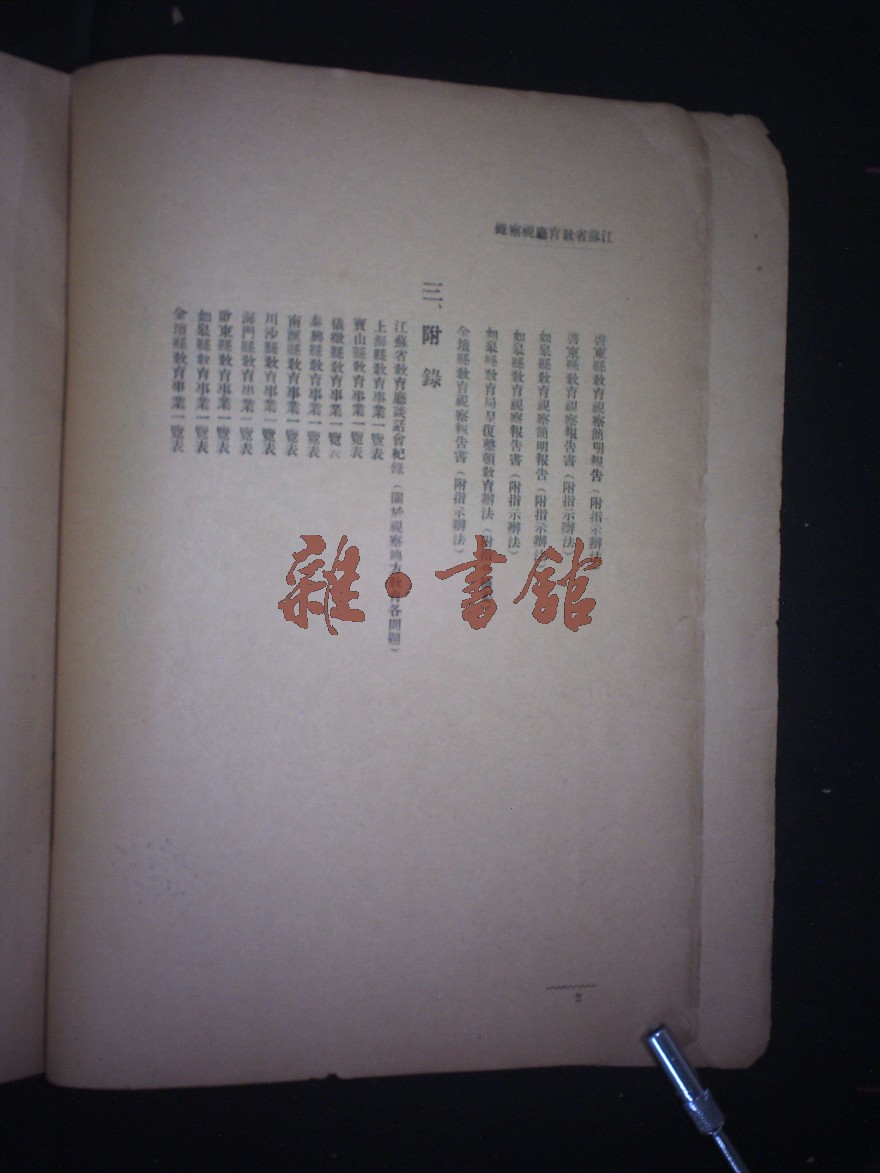 江蘇省教育廳視察錄
啓東縣教育視察簡明報告（附指示辦法）
啓東縣教育視察報告書（附指示辦法）
如皋縣教育視察簡明報告（附指示辦法）
如皋縣教育視察報告書（附指示辦法）
如皋縣教育局呈復整頓教育辦法（附指
金壇縣教育視察報告書（附指示辦法）
三、附錄
江蘇省教育廳談話會紀錄（關於視察地方教育各問題）
上海縣教育事業一覽表
寶山縣教育事業一覽表
儀徵縣教育事業一覽表
泰興縣教育事業一覽表
南匯縣教育事業一覽表
川沙縣教育事業一覽表
海門縣教育事業一覽表
啓東縣教育事業一覽表
如皋縣教育事業一覽表
金壇縣教育事業一覽表
雜·書館